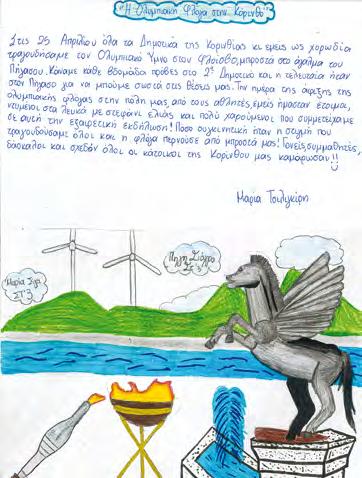 "Η Ολυμπιακή Φλόγα στην Κόρινθο"
Στις 25 Απριλίου όλα τα Δημοτικά της Κορινθίας κι εμείς ως χορωδία
τραγουδήσαμε τον Ολυμπιακό Ύμνο στον Φλοίσβο, μπροστά στο άγαλμα του
Πήγασου. Κάναμε κάθε βδομάδα πρόβες στο 2ο Δημοτικό και η τελευταία ήταν
στον Πήγασο για να μπούμε σωστά στις θέσεις μας. Την ημέρα της άφιξης της
ολυμπιακής φλόγας στην πόλη μας, από τους αθλητές, εμείς ήμασταν έτοιμοι,
ντυμένοι στα λευκά με στεφάνι ελιάς και πολύ χαρούμενοι που συμμετείχαμε
σε αυτή την εξαιρετική εκδήλωση! Πόσο συγκινητική ήταν η στιγμή που
τραγουδούσαμε όλοι και η φλόγα περνούσε από μπροστά μας! Γονείς, συμμαθητές,
δάσκαλοι και σχεδόν όλοι οι κάτοικοι της Κορίνθου μας καμάρωσαν!!
Μαρία Τσιλιγκίρη
Πηγή
ΣΤ'3
Μαρία
ΣΤ'3